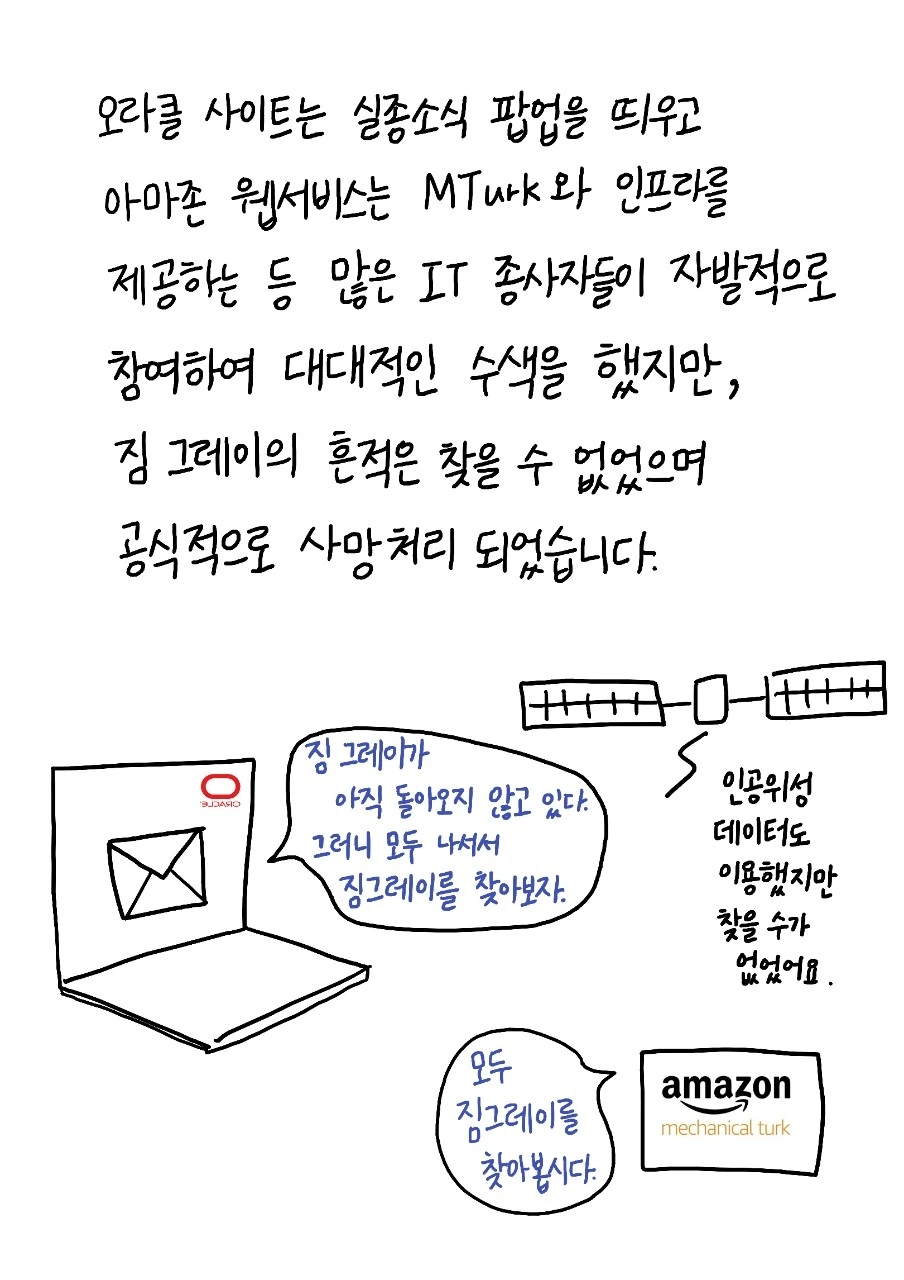 오라클 사이트는 실종소식 팝업을 띄우고
아마존 웹서비스는 MTurk와 인프라를
제공하는 등 많은 IT 종사자들이 자발적으로
참여하여 대대적인 수색을 했지만,
짐 그레이의 흔적은 찾을 수 없었으며
공식적으로 사망처리 되었습니다.
짐 그레이가
아직 돌아오지 않고 있다.
그러니 모두 나서서
짐그레이를 찾아보자.
ORACLE
인공위성
데이터도
이용했지만
찾을 수가
없었어요.
모두
짐그레이를
찾아봅시다.
amazon
mechanical turk